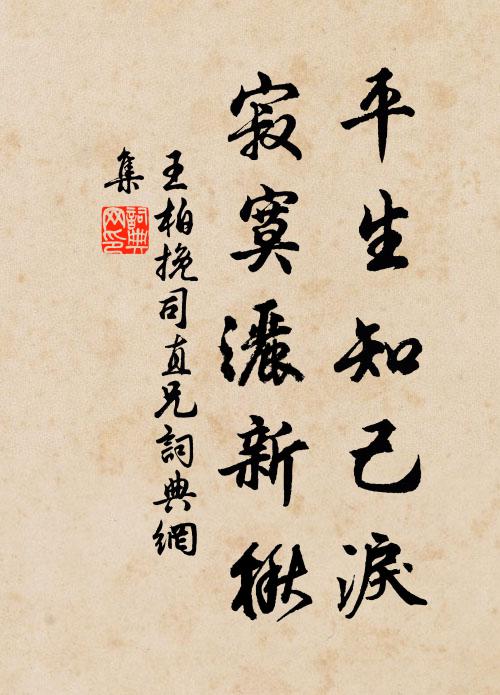 平生知己淚
寂寞灑新楸
王柏挽司直兄詞典網
集
詞典網印